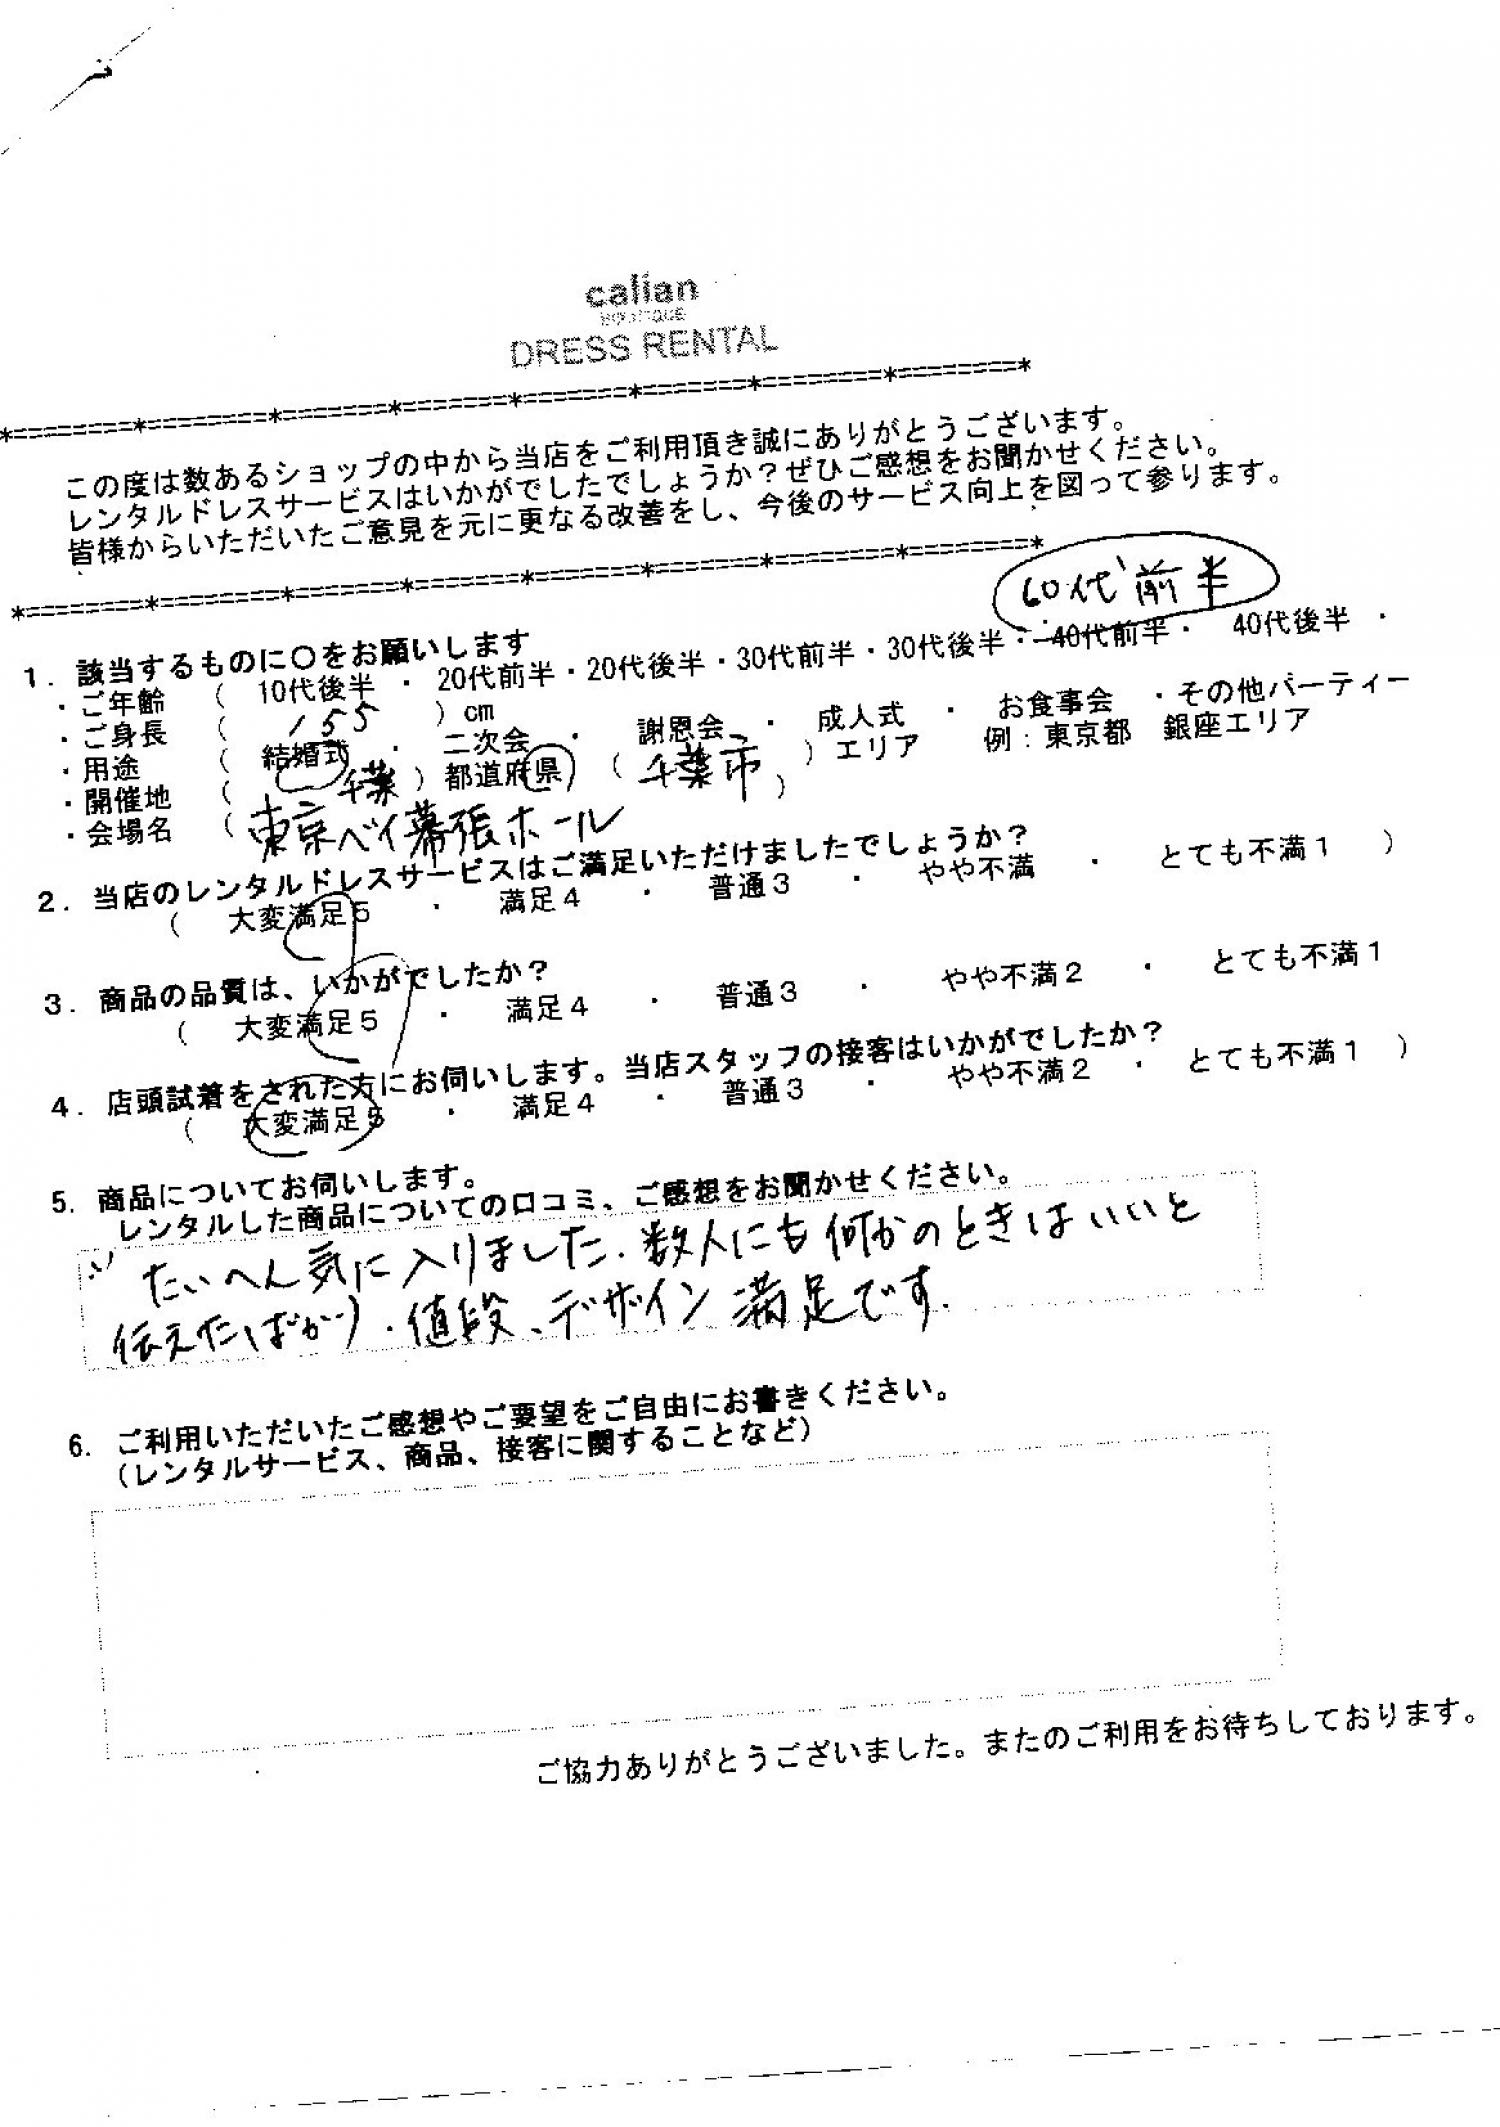 calian
BOUTIQUE
DRESS RENTAL
*========*========*========*========*========*========*========*========*
この度は数あるショップの中から当店をご利用頂き誠にありがとうございます。
レンタルドレスサービスはいかがでしたでしょうか？ぜひご感想をお聞かせください。
皆様からいただいたご意見を元に更なる改善をし、今後のサービス向上を図って参ります。
*========*========*========*========*========*========*========*========*
60代前半
1．該当するものに〇をお願いします
・ご年齢 （ 10代後半 ・ 20代前半・20代後半・30代前半・30代後半・40代前半・ 40代後半 ・
・ご身長 （ 155 ）cm
・用途 （ 結婚式 ・ 二次会 ・ 謝恩会 ・ 成人式 ・ お食事会 ・その他パーティー
・開催地 （ 千葉 ）都道府県 （ 千葉市 ）エリア 例：東京都 銀座エリア
・会場名 （ 東京ベイ幕張ホール ）
2．当店のレンタルドレスサービスはご満足いただけましたでしょうか？
（ 大変満足5 ・ 満足4 ・ 普通3 ・ やや不満 ・ とても不満1 ）
3．商品の品質は、いかがでしたか？
（ 大変満足5 ・ 満足4 ・ 普通3 ・ やや不満2 ・ とても不満1
4．店頭試着をされた方にお伺いします。当店スタッフの接客はいかがでしたか？
（ 大変満足5 ・ 満足4 ・ 普通3 ・ やや不満2 ・ とても不満1 ）
5．商品についてお伺いします。
レンタルした商品についての口コミ、ご感想をお聞かせください。
たいへん気に入りました．数人にも何かのときはいいと
伝えたばかり．値段、デザイン満足です．
6．ご利用いただいたご感想やご要望をご自由にお書きください。
（レンタルサービス、商品、接客に関することなど）
ご協力ありがとうございました。またのご利用をお待ちしております。